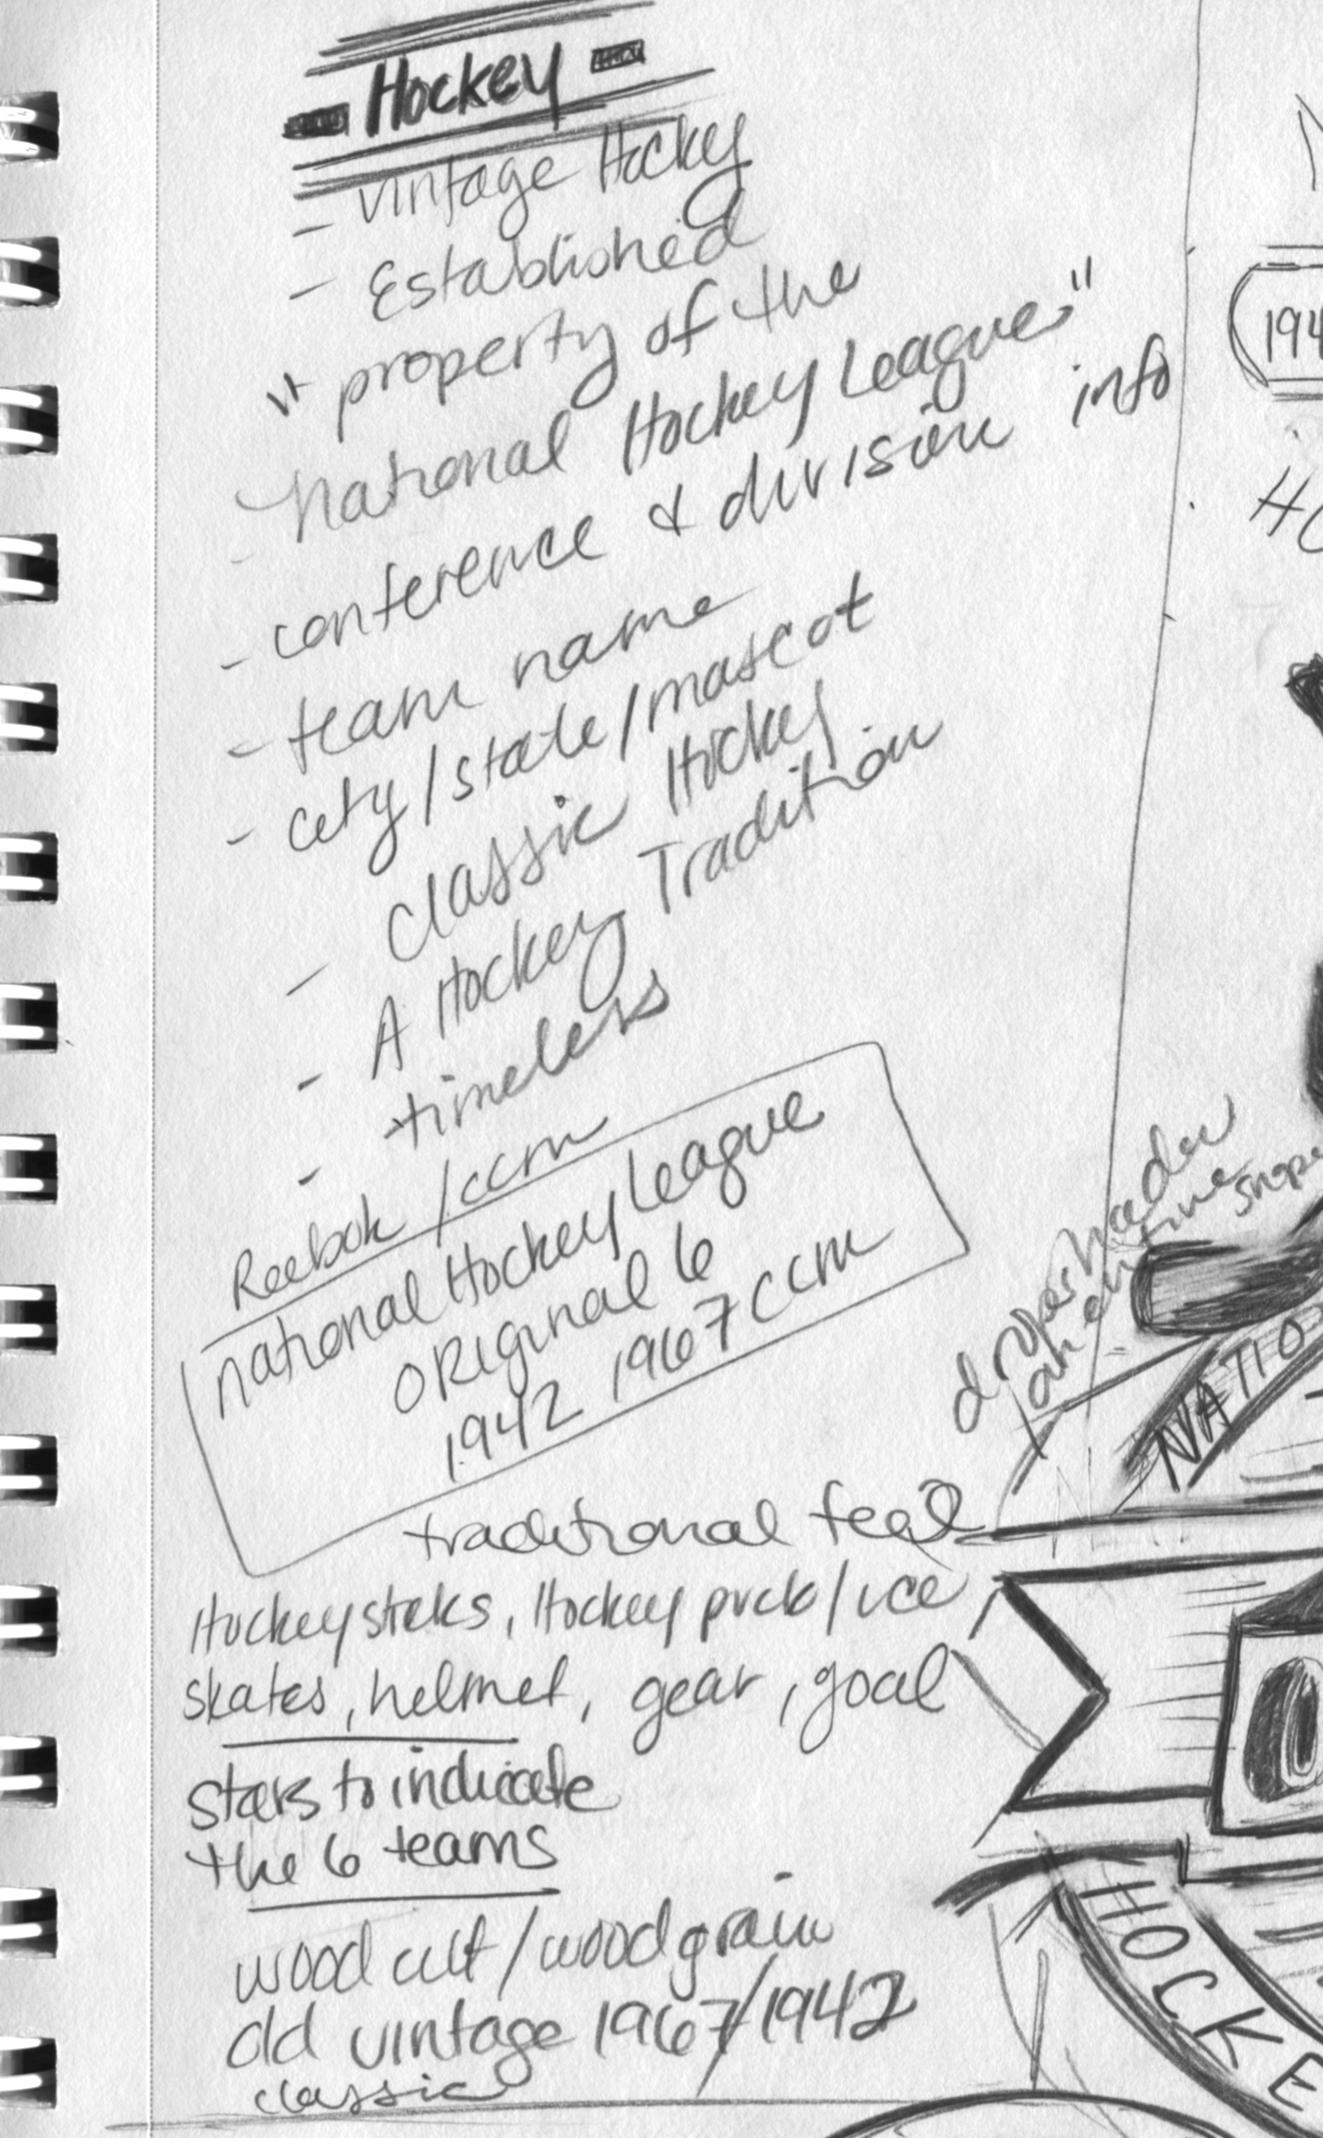 Hockey
- vintage Hockey
- Established
"property of the
National Hockey League"
- conference & division info
- team name
- city/state/mascot
- classic Hockey
- A Hockey Tradition
- timeless
Reebok/ccm
National Hockey League
ORiginal 6
1942 1967 ccm
traditional feel
Hockey sticks, Hockey puck/ice
skates, helmet, gear, goal
stars to indicate
the 6 teams
wood cut/woodgrain
old vintage 1967/1942
classic
194
HO
drop shadow
an
NATIO
O
HOCKE